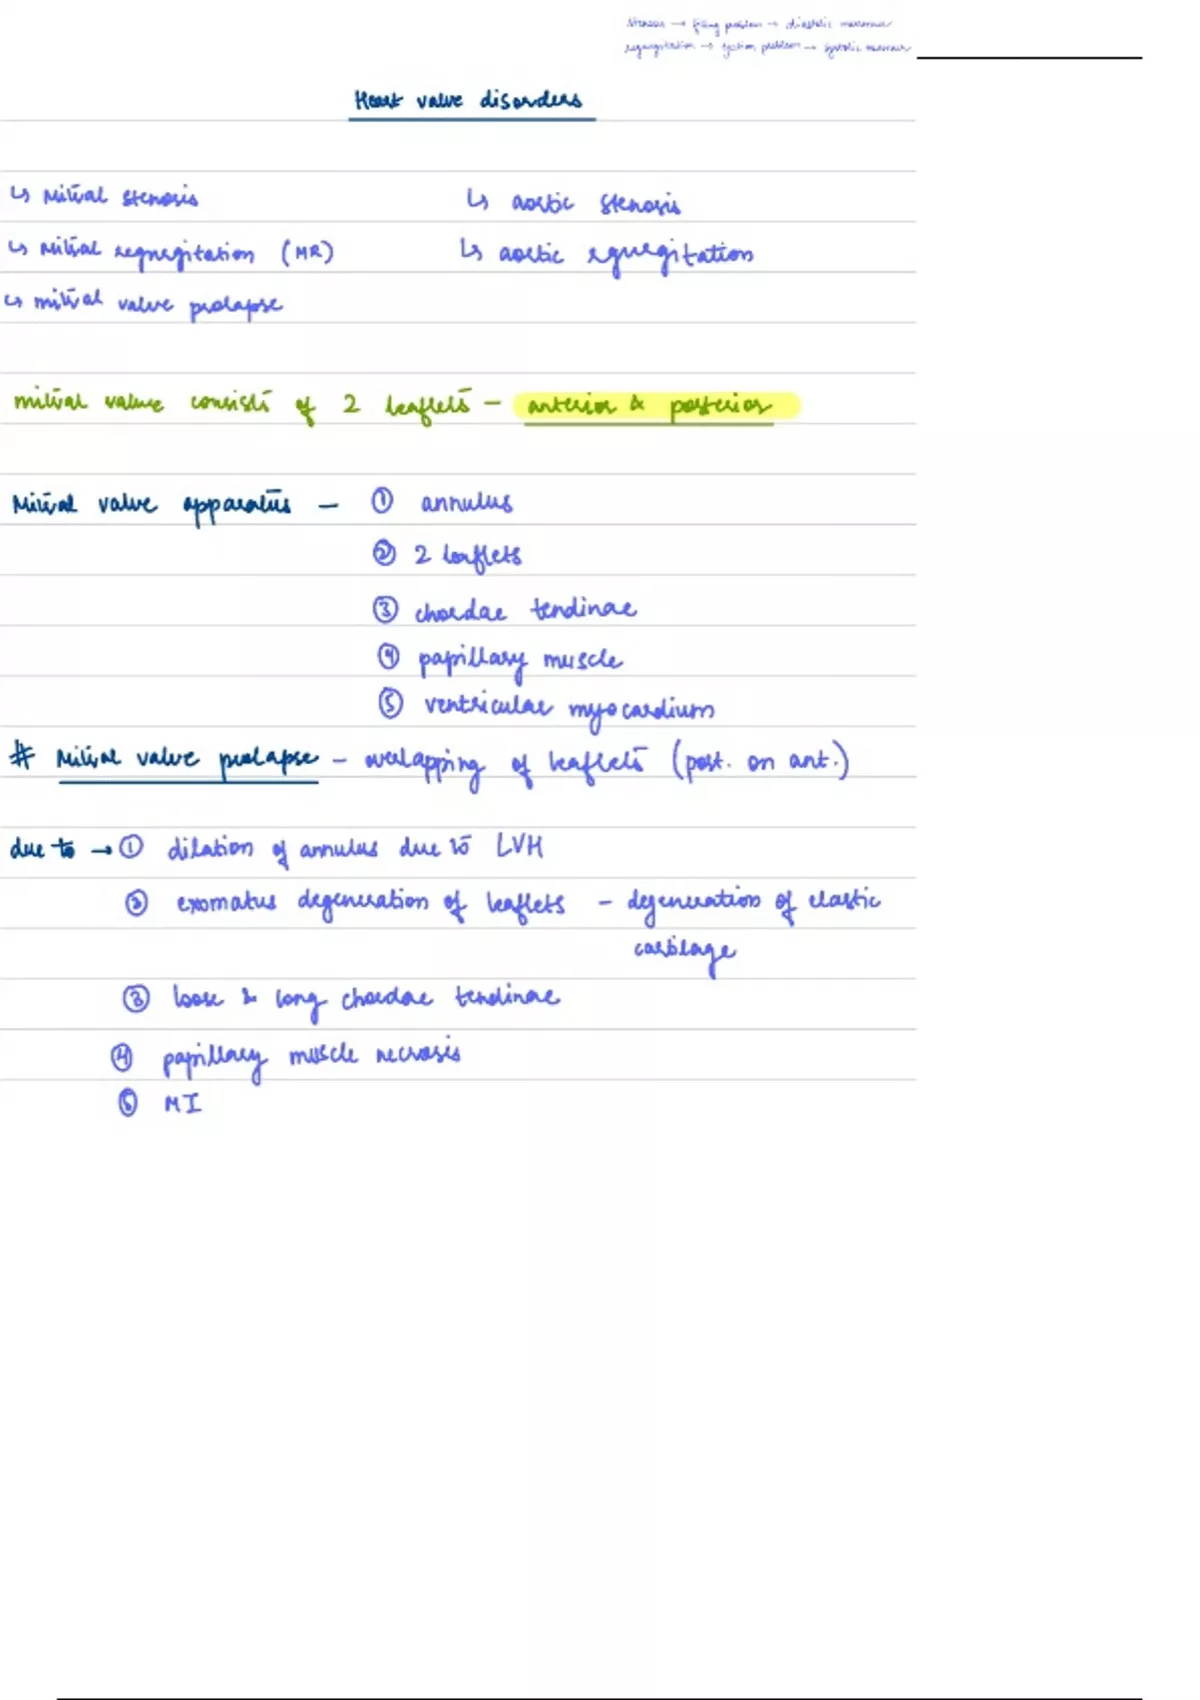 stenosis → filling problem → diastolic murmur
regurgitation → ejection problem → systolic murmur
Heart valve disorders
↳ Mitral stenosis
↳ aortic stenosis
↳ Mitral regurgitation (MR)
↳ aortic regurgitation
↳ mitral valve prolapse
mitral valve consists of 2 leaflets – anterior & posterior
Mitral valve apparatus – ① annulus
② 2 leaflets
③ chordae tendinae
④ papillary muscle
⑤ ventricular myocardium
# Mitral valve prolapse – overlapping of leaflets (post. on ant.)
due to → ① dilation of annulus due to LVH
② exomatus degeneration of leaflets – degeneration of elastic
cartilage
③ loose & long chordae tendinae
④ papillary muscle necrosis
⑤ MI